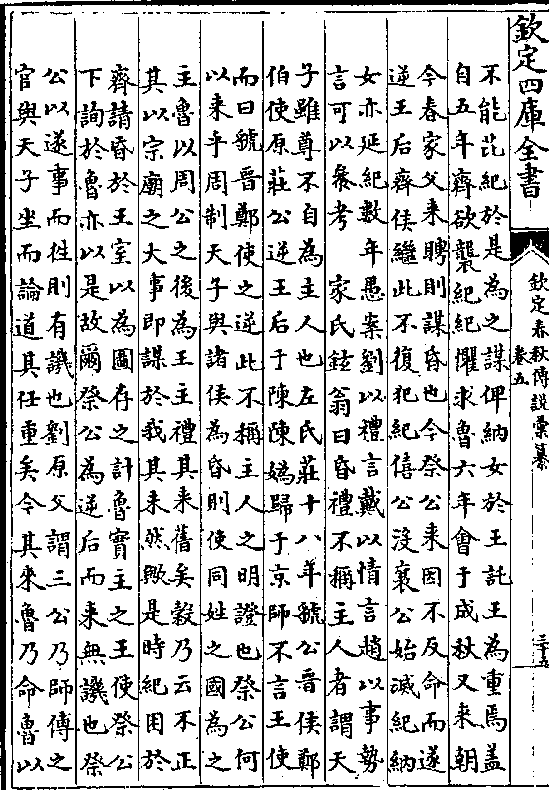 欽定四庫全書
欽定春秋傳説彙纂
卷五
三十五
不能芘紀於是為之謀俾納女於王託王為重焉蓋
自五年齊欲襲紀紀懼求魯六年會于成秋又来朝
今春家父来聘則謀昏也今祭公来因不反命而遂
逆王后齊侯繼此不復犯紀僖公沒襄公始滅紀納
女亦延紀數年愚案劉以禮言戴以情言趙以事勢
言可以叅考　家氏鉉翁曰昏禮不稱主人者謂天
子雖尊不自為主人也左氏莊十八年虢公晉侯鄭
伯使原莊公逆王后于陳陳媯歸于京師不言王使
而曰虢晉鄭使之逆此不稱主人之明證也祭公何
以来乎周制天子與諸侯為昏則使同姓之國為之
主魯以周公之後為王主禮其来舊矣穀乃云不正
其以宗廟之大事即謀於我其未然歟是時紀困於
齊請昏於王室以為圖存之計魯實主之王使祭公
下詢於魯亦以是故爾祭公為逆后而来無譏也祭
公以遂事而徃則有譏也劉原父謂三公乃師傅之
官與天子坐而論道其任重矣今其来魯乃命魯以